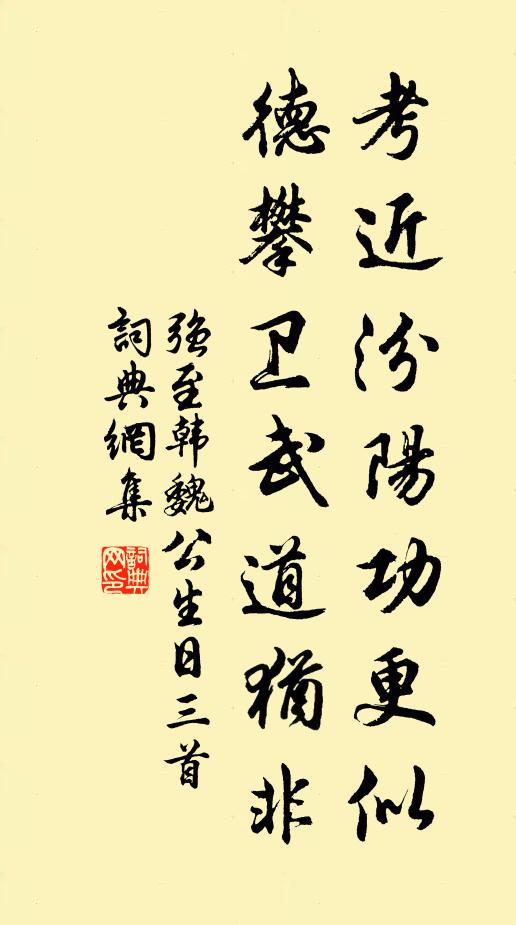 考近汾陽功更似
德攀卫武道猶非
强至韩魏公生日三首
詞典網集
詞典网印